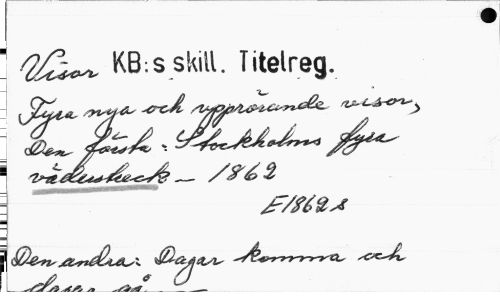 Visor KB:s skill. Titelreg.
Fyra nya och upprörande visor,
Den första: Stockholms fyra
väderstreck – 1862
E1862s
Den andra: Dagar komma och
dagar gå